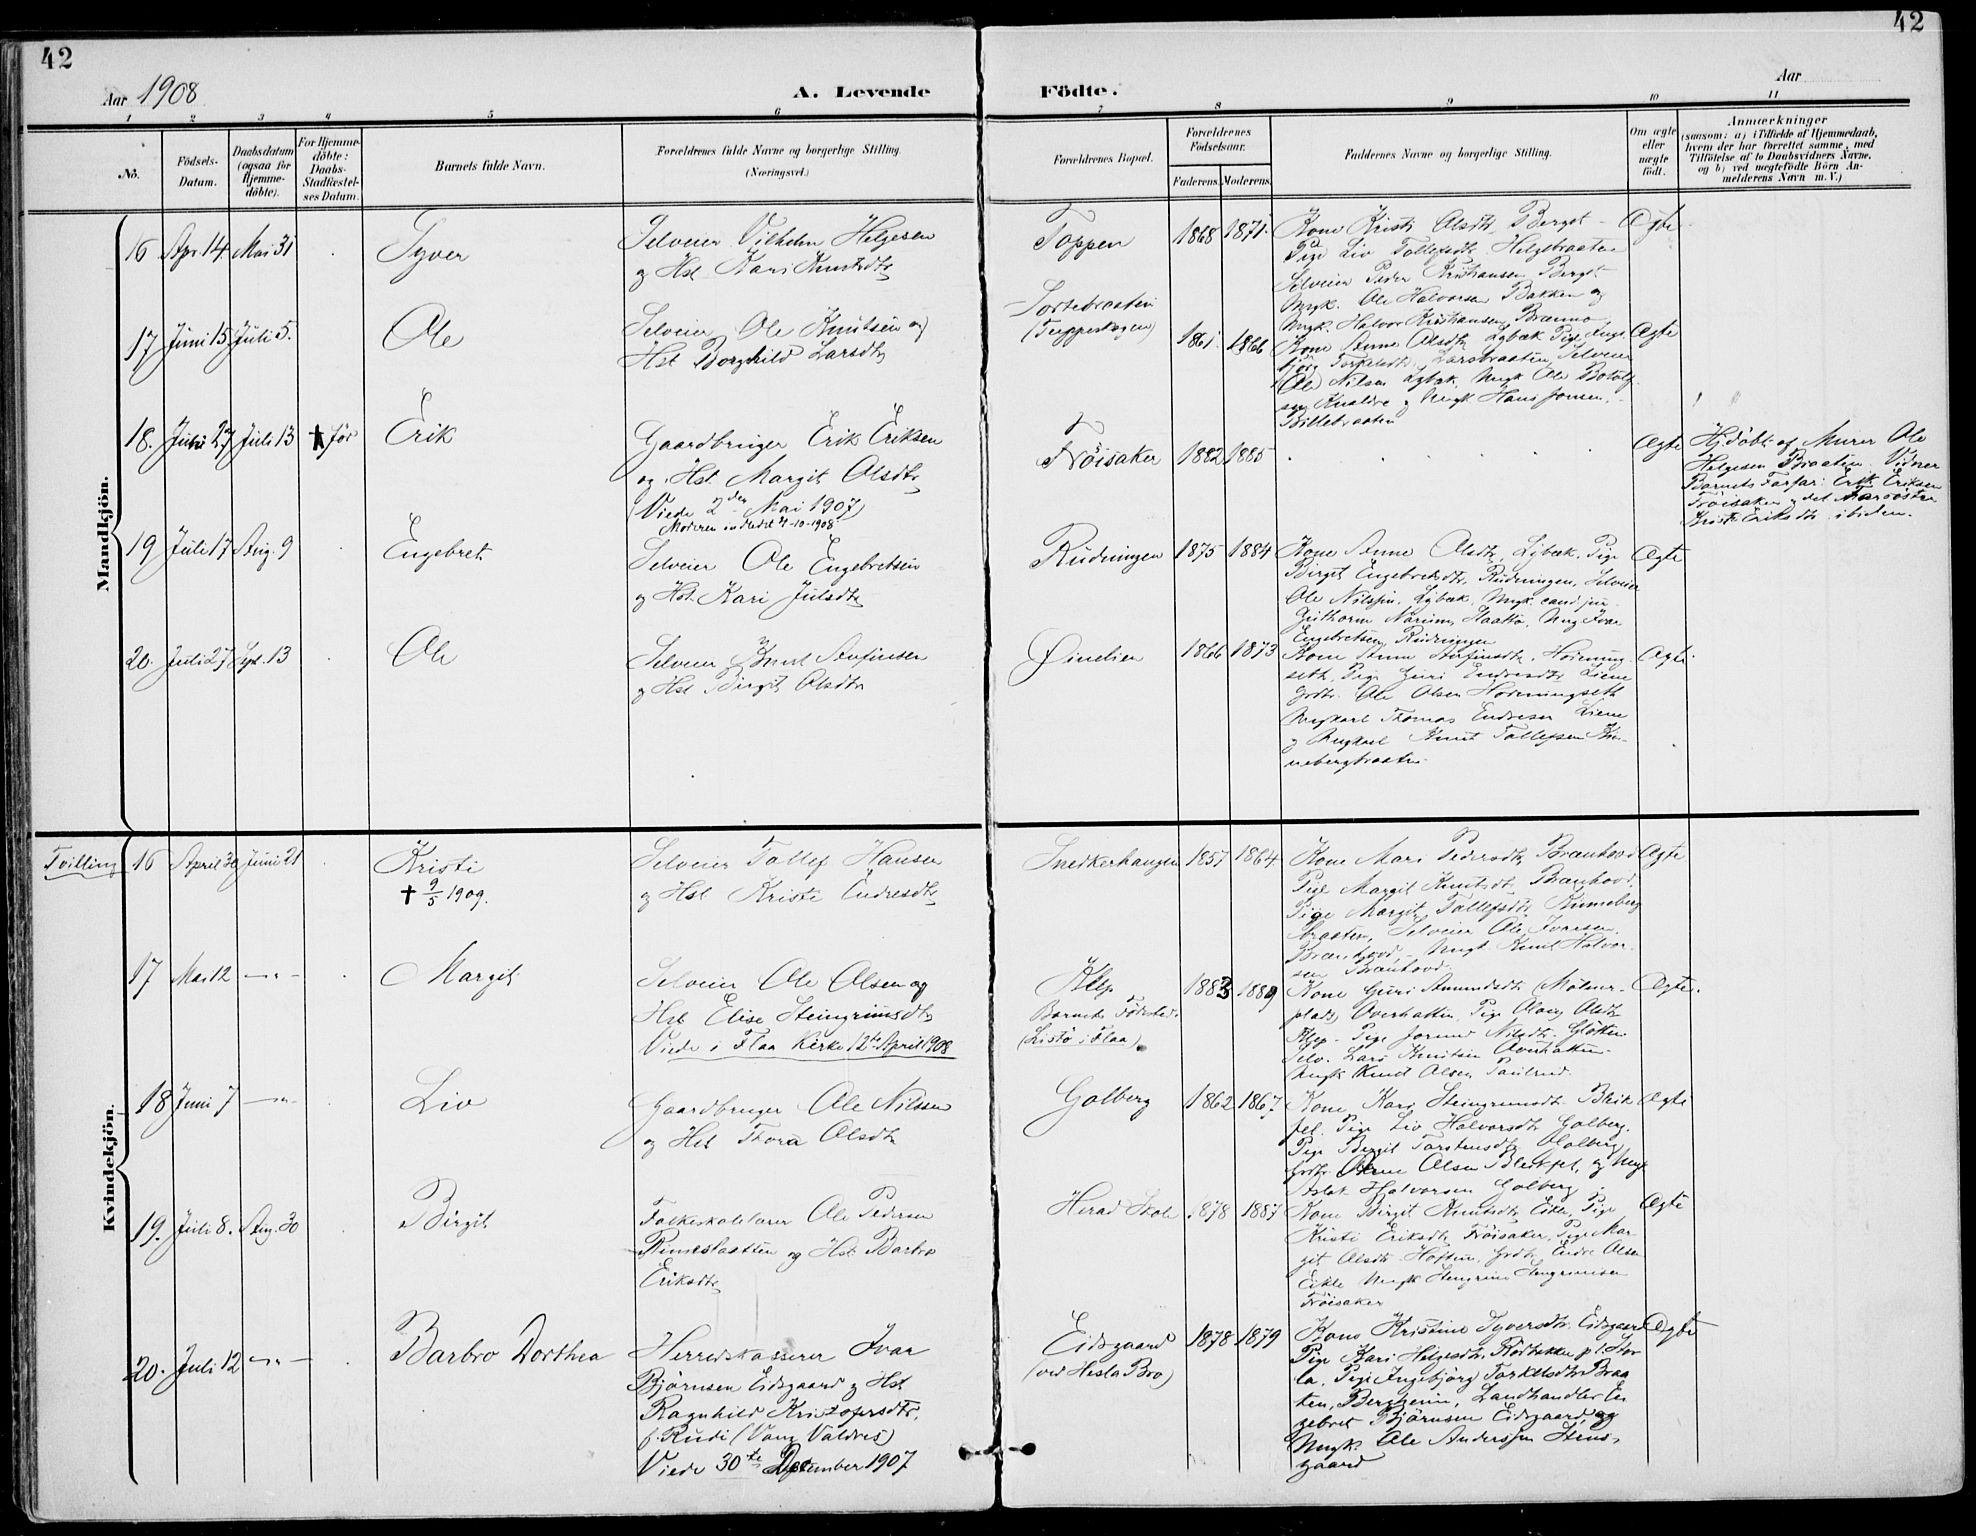 42
42
Aar 1908
A. Levende
Födte.
Aar
1 2 3 4 5 6 7 8 9 10 11
No.
Födsels-
Datum.
Daabsdatum
(ogsaa for
Hjemme-
döbte).
For Hjemme-
döbte:
Daabs-
Stadfæstel-
ses Datum.
Barnets fulde Navn.
Forældrenes fulde Navne og borgerlige Stilling.
(Næringsvei.)
Forældrenes Bopæl.
Forældrenes
Födselsaar.
Faderens. Moderens.
Faddernes Navne og borgerlige Stilling.
Om ægte
eller
uægte
födt.
Anmærkninger
(saasom: a) i Tilfælde af Hjemmedaab,
hvem der har forrettet samme, med
Tilföielse af to Daabsvidners Navne,
og b) ved uægtefödte Börn An-
melderens Navn m. V.)
Mandkjön.
16 Apr. 14 Mai 31
Syver
Selveier Vilhelm Helgesen
og Hst Kari Knutsdtr
Toppen
1868 1871
Kone Kristi Olsdtr Berget
Pige Liv Tollefsdtr Helgebraaten
Selveier Peder Kristiansen Berget
Ungk. Ole Halvorsen Bakken og
Ungk. Halvor Kristiansen
Ægte
17 Juni 15 Juli 5.
Ole
Selveier Ole Knutsen og
Hst Borghild Larsdtr
Sortebraaten
1861 1866
Kone Anne Olsdtr Lybæk Pige Inge-
björg Larsbraaten, Selveier
Ole Nilsen Lybæk, Ungk Ole Botolf-
sen og Ungk Hans Jonsen,
Ægte
18. Juni 27 Juli 13 † för
Erik
Gaardbruger Erik Eriksen
og Hst Margit Olsdtr
(Viede 2den Mai 1907)
Moderen indledet 4-10-1908
Fröisaker
1882 1885
Ægte
Hj.döbt af Murer Ole
Helgesen Braaten. Vidner
Barnets Farfar: Erik Eriksen
Fröisaker og det Farsöster
Kristi Eriksdtr ibidem.
19 Juli 17 Aug. 9
Engebret
Selveier Ole Engebretsen
og Hst. Kari Julsdtr
Rudningen
1875 1884
Kone Anne Olsdtr Lybæk, Pige
Birgit Engebretsdtr Rudningen, Selveier
Ole Nilssen, Lybæk, Ungk. cand jur
Guthorm Ung Ivar
Engebretsen Rudningen
Ægte
20. Juli 27 Sept. 13
Ole
Selveier Knut Arfinsen
og Hst Birgit Olsdtr
1866 1873
Kone Anne Arfinsdtr. Horning-
seth, Pige Guri Endresdtr Liene
Grdbr. Ole Olsen Horningseth
Ungkarl Thomas Endresen Liene
og Ungkarl Knut Tollefsen Kin-
nebergbraaten
Ægte
Kvindekjön.
Tvilling 16 April 30 Juni 21
Kristi
† 9/5 1909.
Selveier Tollef Hansen
og Hst Kristi Endresdtr
Snedkerhaugen
1857 1864
Kone Mari Pedersdtr Brænhovd
Pige Margit Knutsdtr Brænhovd.
Pige Margit Tollefsdtr Kinneberg
braaten, Selveier Ole Iversen
Brænhovd, Ungk. Knut Halvor-
sen Brænhovd
Ægte
17 Mai 12 —"—
Margit
Selveier Ole Olsen og
Hst Elise Steingrimsdtr
Viede i Flaa Kirke 12te April 1908
Klep
Barnets Födested:
(Listö i Flaa)
1883 1889
Kone Guri Amundsdtr (Mölner-
plads) Averhatten Pige Olsdtr
Klep. Pige Jorunn Nilsdtr. Glötten
Selv. Lars Knutsen Averhatten
Ungk Knut Olsen Paulrud.
Ægte.
18 Juni 7 —"—
Liv
Gaardbruger Ole Nilssen
og Hst Thora Olsdtr
Golberg
1862 1867
Kone Kari Steingrimsdtr Blik-
fel. Pige Liv Halvorsdtr Golberg.
Pige Birgit Torstensdtr Golberg
Grdbr. Arne Olsen og Ungk
Aslak Halvorsen Golberg
Ægte
19. Juli 8. Aug. 30
Birgit
Folkeskolelærer Ole Pedersen
og Hst Barbro
Eriksdtr
Herad Skole
1878 1887
Kone Birgit Knutsdtr Eikle, Pige
Kristi Eriksdtr Fröisaker, Pige Mar-
git Olsdtr Hoften, Grdbr Endre Olsen
Eikle Ungk Stengrim Stengrimsen
Fröisaker
Ægte
20. Juli 12 —"—
Barbro Dorthea
Herredskasserer Ivar
Björnsen Eidsgaard og Hst
Ragnhild Kristofersdtr,
f. Rudi (Vang Valdres)
Viede 30te December 1907
Eidsgaard
(ved Hesla Bro)
1878 1879
Kone Kristine Syversdtr. Eidsgaard
Pige Kari Helgesdtr.
Pige Ingebjörg Torkelsdtr Braa-
ten, Bergheim, Landhandler En-
gebret Björnsen Eidsgaard og
Ungk. Ole Anderssen Stens-
gaard
Ægte